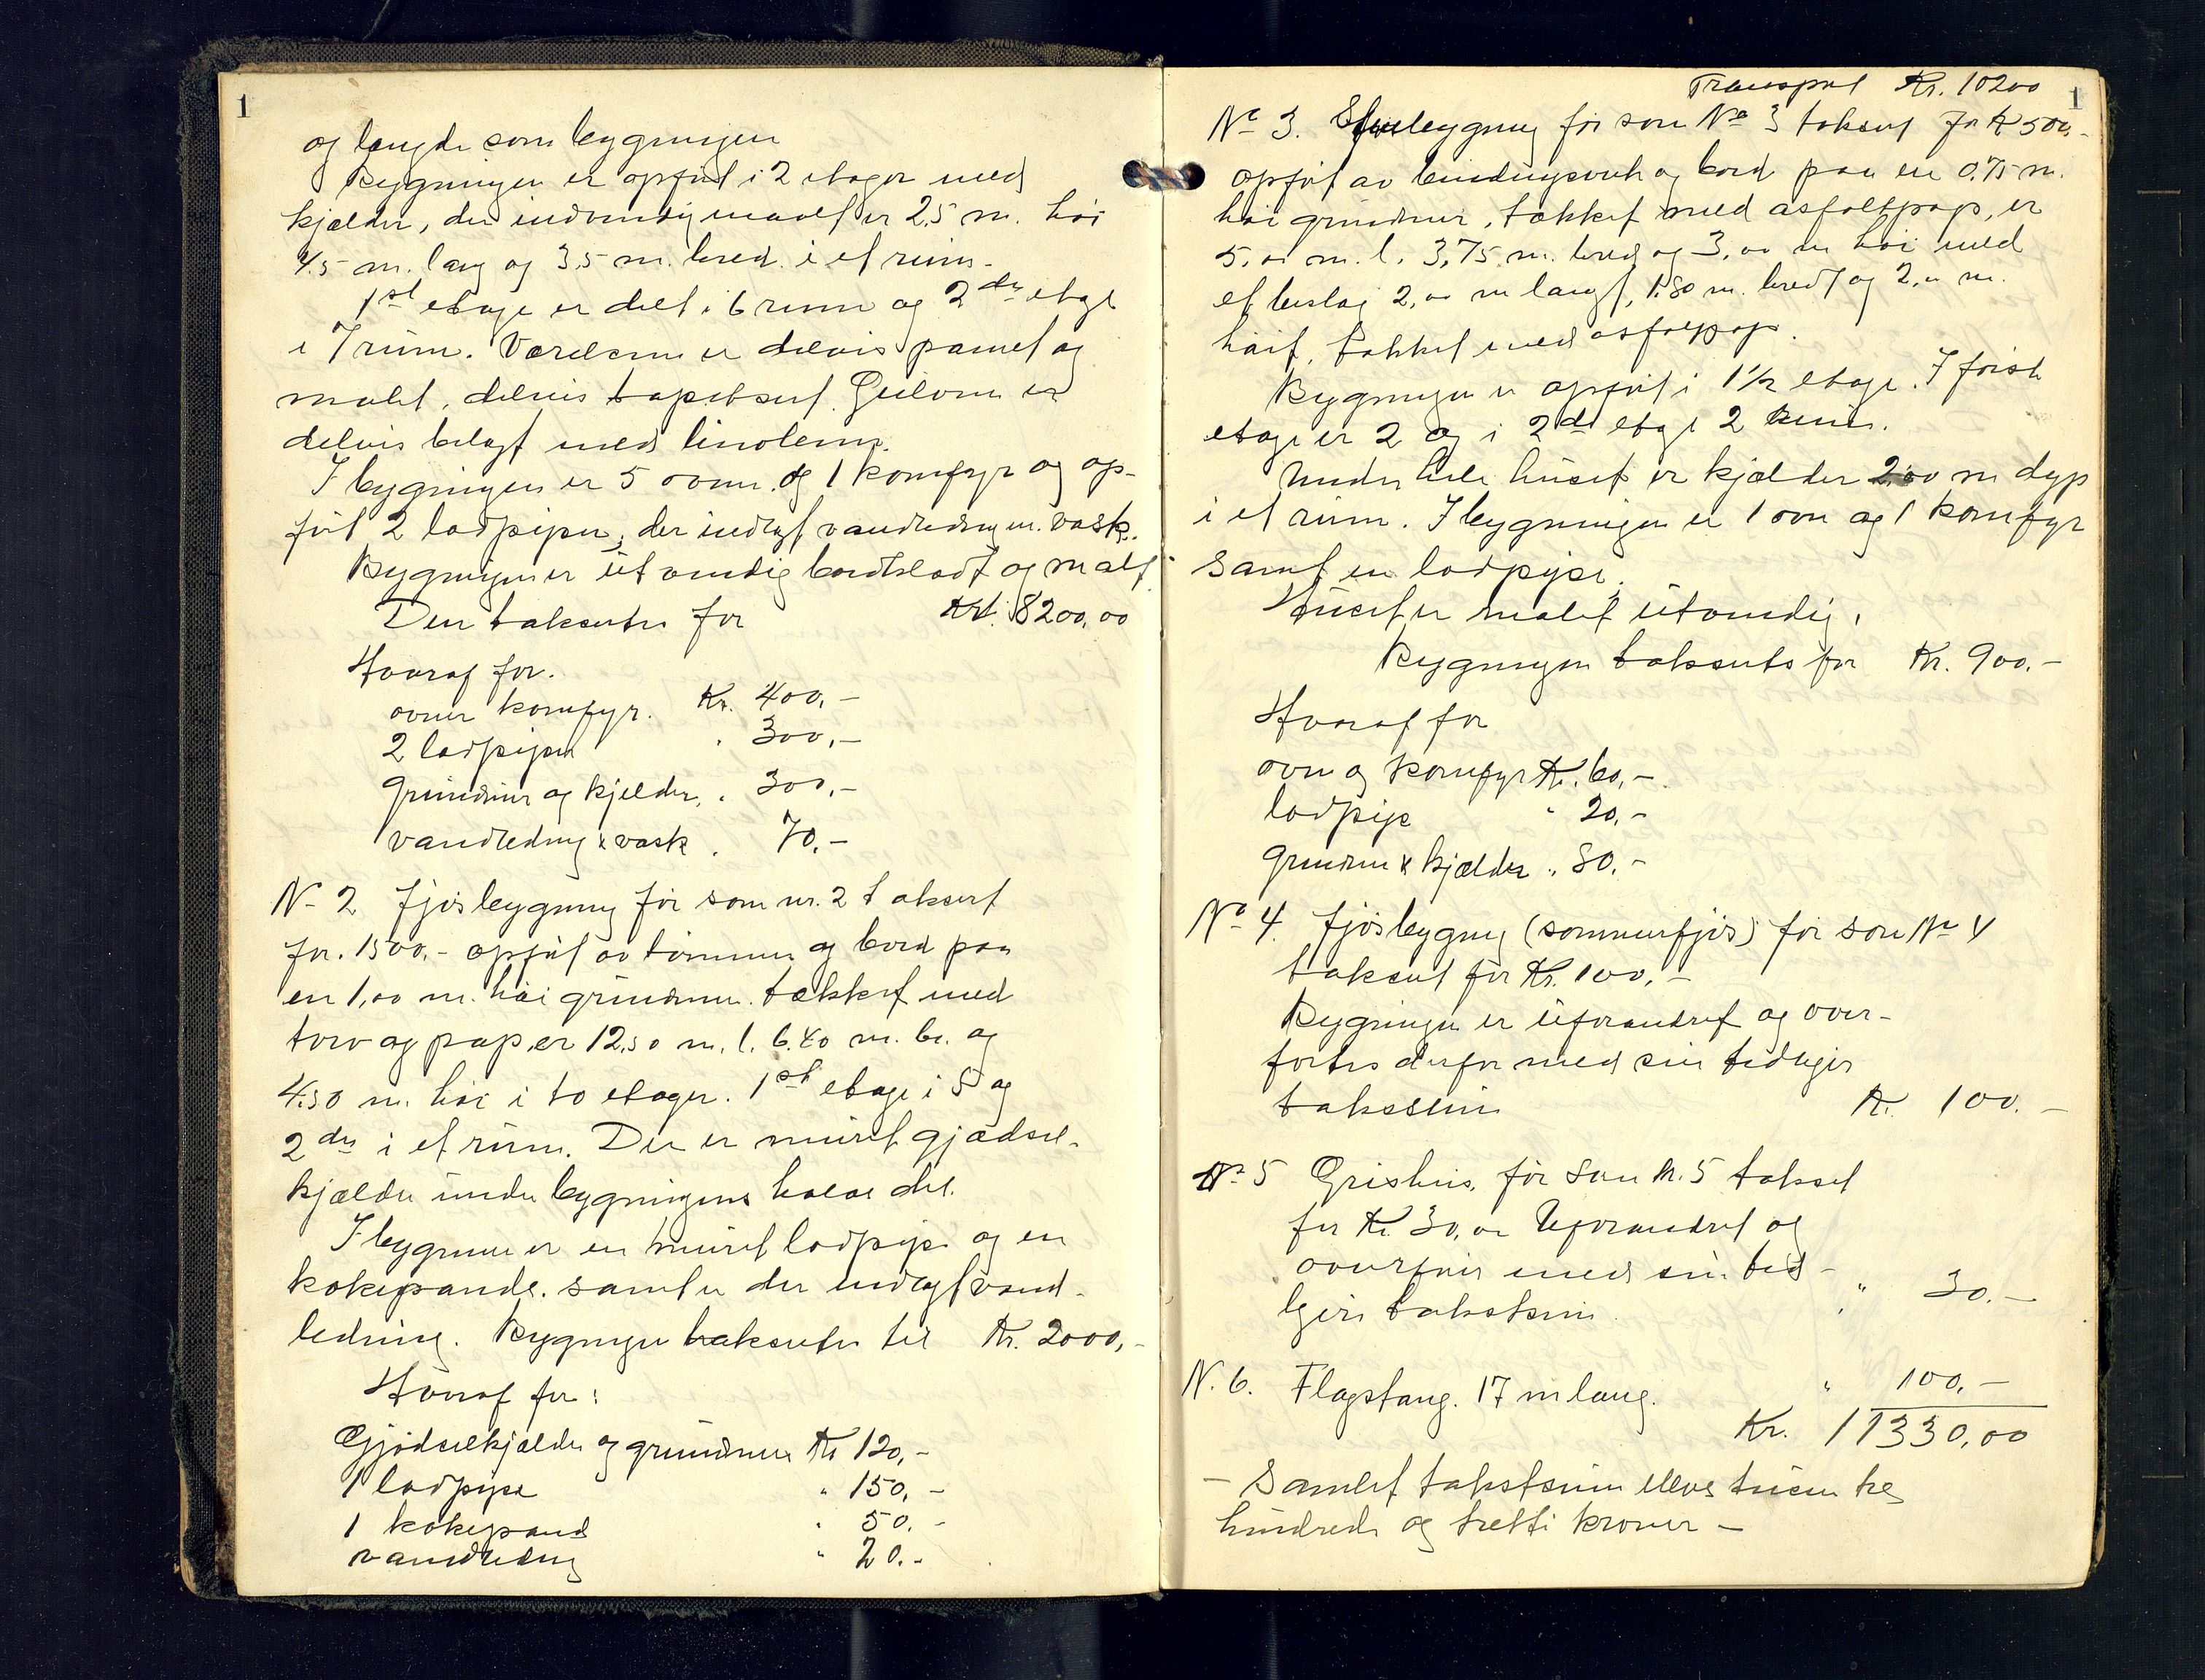 1
og længde som bygningen
Bygningen er opført i 2 etager med
kjælder, der indvendig maalt er 2,5 m. høi
4,5 m. lang og 3,5 m. bred i et rum.
1st etage er delt i 6 rum og 2den etage
i 7 rum. Værelserne er delvis panelt og
malet, delvis tapetsert. Gulvene er
delvis belagt med linoleum.
I bygningen er 5 ovner og 1 komfyr og op-
ført 2 ladpiper, der indlagt vandledning m. vask.
Bygningen er utvendig bordklædt og malt.
Den taksertes for Kr. 8200,00
Hvoraf for.
ovner komfyr. Kr. 400,-
2 ladpiper " 300,-
Grundmur og kjelder, " 300,-
vandledning & vask " 70,-
N- 2 Fjøsbygning før som nr. 2 taksert
for. 1500,- opført av tømmer og bord paa
en 1,00 m. høi grundmur. tækket med
torv og pap, er 12,50 m. l. 6.40 m. br. og
4.50 m. høi i to etager. 1st etage i 5 og
2den i et rum. Der er muret gjødsel-
kjælder under bygningens halve del.
I bygningen er en muret ladpipe og en
kokepande. samt er der indlagt vand-
ledning. Bygningen taksertes til Kr. 2000,-
Hvoraf for:
Gjødselkjelder og grundmur Kr 120,-
1 ladpipe " 150,-
1 kokepand " 50.-
vandledning " 20.-
Transport Kr. 10200
1
No 3. bygning før som No 3 taksert for Kr 500,-
opført av bindingsverk og bord paa en 0.75 m.
høi grundmur, tækket med asfaltpap, er
5,00 m. l. 3,75 m. bred og 3,00 m høi med
et bislag 2,00 m langt, 1.80 m. bredt og 2,00 m.
høit, tækket med asfaltpap.
Bygningen er opført i 1½ etage. I første
etage er 2 og i 2den etage 2 rum.
Under hele huset er kjælder 2,00 m dyp
i et rum. I bygningen er 1 ovn og 1 komfyr
samt en ladpipe.
Huset er malet utvendig.
Bygningen taksertes for Kr. 900.-
Hvoraf for
ovn og komfyr Kr. 60,-
ladpipe " 20.-
grundmur & kjælder " 80.-
No 4. Fjøsbygning (sommerfjøs) før som No 4
taksert for Kr. 100,-
Bygningen er uforandret og over-
føres derfor med sin tidligere
takssum Kr. 100.-
No 5 Grishus, før som N. 5 taksert
for Kr. 30,00 Uforandret og
overføres med sin tid-
ligere takstsum. " 30.-
N. 6. Flagstang. 17 m lang. " 100,-
Kr. 11330,00
- Samlet takstsum elleve tusen tre
hundrede og tretti kroner -